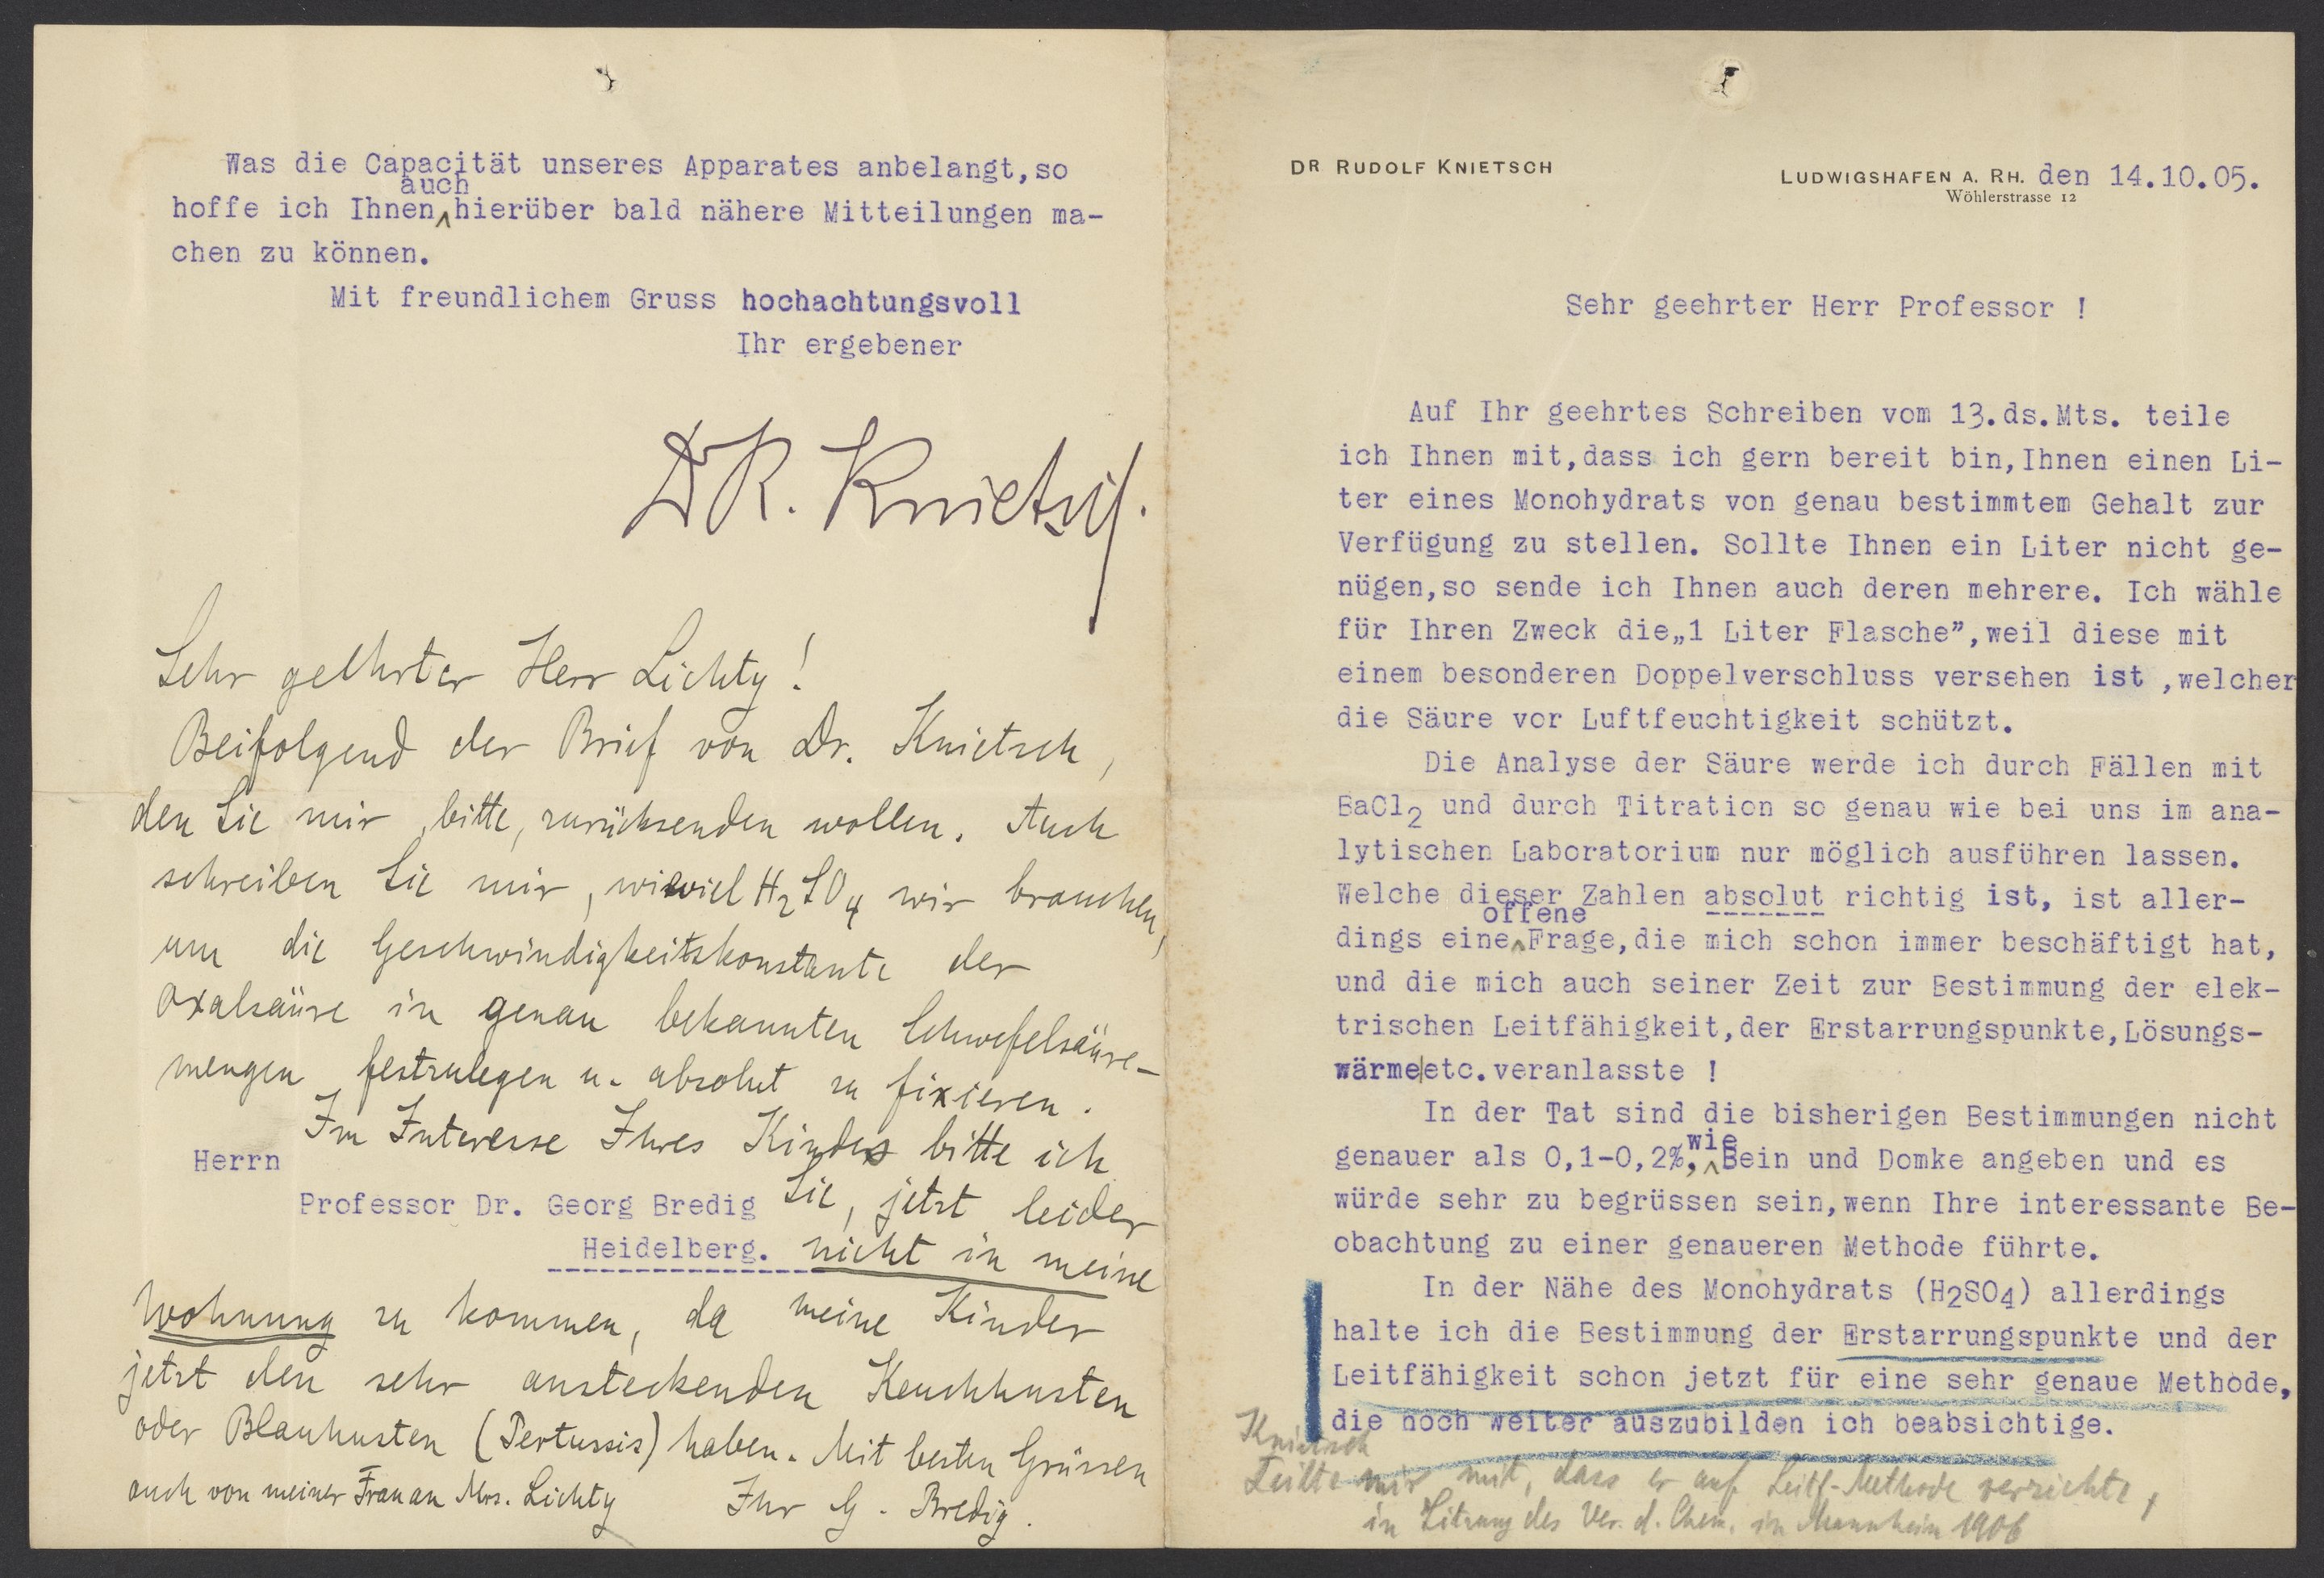 DR RUDOLF KNIETSCH
LUDWIGSHAFEN A. RH. den 14.10.05.
Wöhlerstrasse 12
Sehr geehrter Herr Professor !
Auf Ihr geehrtes Schreiben vom 13.ds.Mts. teile
ich Ihnen mit,dass ich gern bereit bin,Ihnen einen Li-
ter eines Monohydrats von genau bestimmtem Gehalt zur
Verfügung zu stellen. Sollte Ihnen ein Liter nicht ge-
nügen,so sende ich Ihnen auch deren mehrere. Ich wähle
für Ihren Zweck die„1 Liter Flasche”,weil diese mit
einem besonderen Doppelverschluss versehen ist ,welcher
die Säure vor Luftfeuchtigkeit schützt.
Die Analyse der Säure werde ich durch Fällen mit
BaCl2 und durch Titration so genau wie bei uns im ana-
lytischen Laboratorium nur möglich ausführen lassen.
Welche dieser Zahlen absolut richtig ist, ist aller-
offene
dings eine^Frage,die mich schon immer beschäftigt hat,
und die mich auch seiner Zeit zur Bestimmung der elek-
trischen Leitfähigkeit,der Erstarrungspunkte,Lösungs-
wärme|etc.veranlasste !
In der Tat sind die bisherigen Bestimmungen nicht
wie
genauer als 0,1-0,2%,^Bein und Domke angeben und es
würde sehr zu begrüssen sein,wenn Ihre interessante Be-
obachtung zu einer genaueren Methode führte.
In der Nähe des Monohydrats (H2SO4) allerdings
halte ich die Bestimmung der Erstarrungspunkte und der
Leitfähigkeit schon jetzt für eine sehr genaue Methode,
die noch weiter auszubilden ich beabsichtige.
Knietsch
teilte mir mit, dass er auf Leitf-Methode verzichte,
in Sitzung des Ver. d. Chem. in Mannheim 1906
Was die Capacität unseres Apparates anbelangt,so
auch
hoffe ich Ihnen^hierüber bald nähere Mitteilungen ma-
chen zu können.
Mit freundlichem Gruss hochachtungsvoll
Ihr ergebener
Dr R. Knietsch.
Sehr geehrter Herr Lichty!
Beifolgend der Brief von Dr. Knietsch,
den Sie mir, bitte, zurücksenden wollen. Auch
schreiben Sie mir, wieviel H2SO4 wir brauchen,
um die Geschwindigkeitskonstante der
Oxalsäure in genau bekannten Schwefelsäure-
mengen festzulegen u. absolut zu fixieren.
Im Interesse Ihres Kindes bitte ich
Herrn
Sie, jetzt leider
Professor Dr. Georg Bredig
Heidelberg.
nicht in meine
Wohnung zu kommen, da meine Kinder
jetzt den sehr ansteckenden Keuchhusten
oder Blauhusten (Pertussis) haben. Mit besten Grüssen
auch von meiner Frau an Mrs. Lichty Ihr G. Bredig.